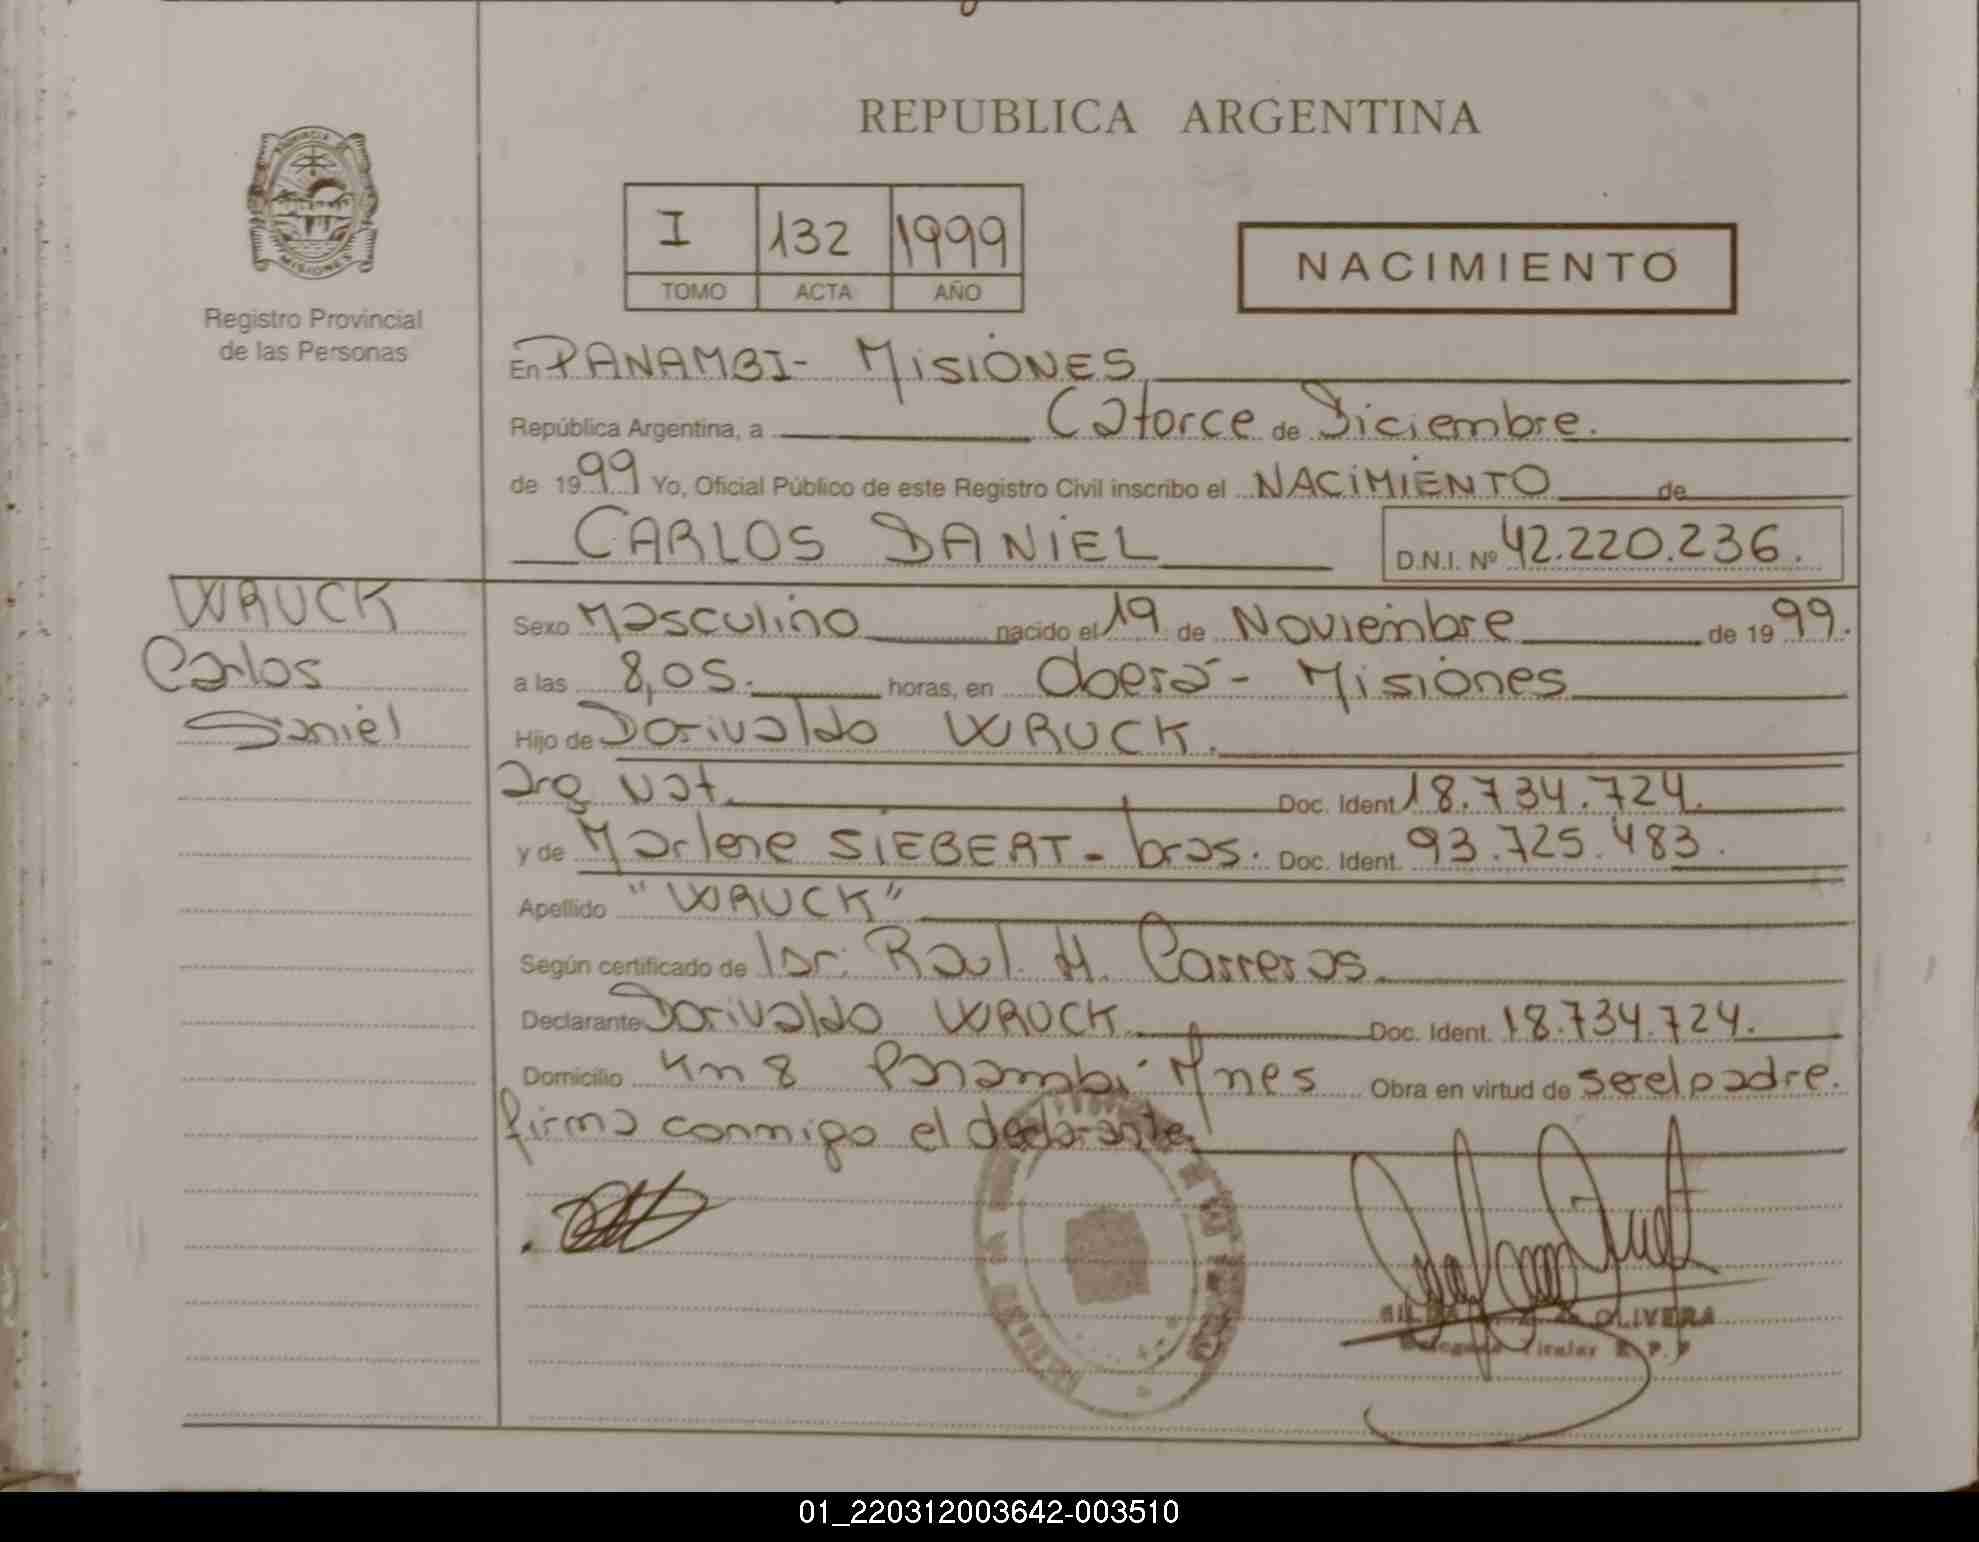 REPUBLICA ARGENTINA
PROVINCIA
MISIONES
Registro Provincial
de las Personas
I 132 1999
TOMO ACTA AÑO
NACIMIENTO
En PANAMBI- MISIONES
República Argentina, a Catorce de Diciembre.
de 1999 Yo, Oficial Público de este Registro Civil inscribo el NACIMIENTO de
CARLOS DANIEL D.N.I. Nº 42.220.236.
WRUCK
Carlos
Daniel
Sexo Masculino nacido el 19 de Noviembre de 1999.
a las 8,05. horas, en Oberá - Misiones
Hijo de Dorivaldo WRUCK.
arg nat. Doc. Ident 18.734.724.
y de Marlene SIEBERT - bras. Doc. Ident. 93.725.483.
Apellido "WRUCK"
Según certificado de Raul. H. Carreras.
Declarante Dorivaldo WRUCK Doc. Ident. 18.734.724.
Domicilio Km 8 Panambi Mnes Obra en virtud de ser el padre.
firma conmigo el declarante.
OLIVERA
Titular R. P. P
01_220312003642-003510